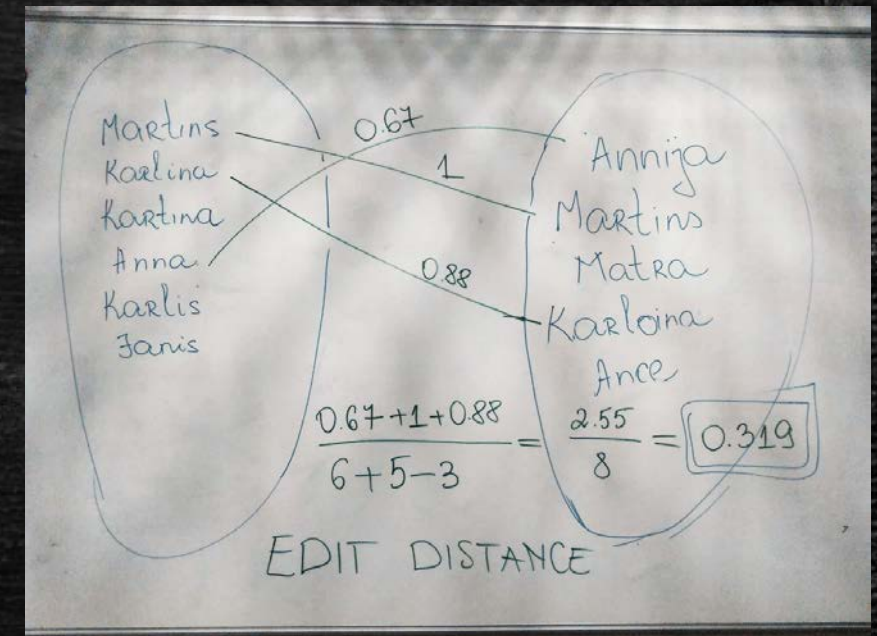 Martins
Karlina
Kartina
Anna
Karlis
Janis
0.67
1
0.88
Annija
Martins
Matra
Karloina
Ance
0.67+1+0.88
6+5-3
=
2.55
8
= 0.319
EDIT DISTANCE